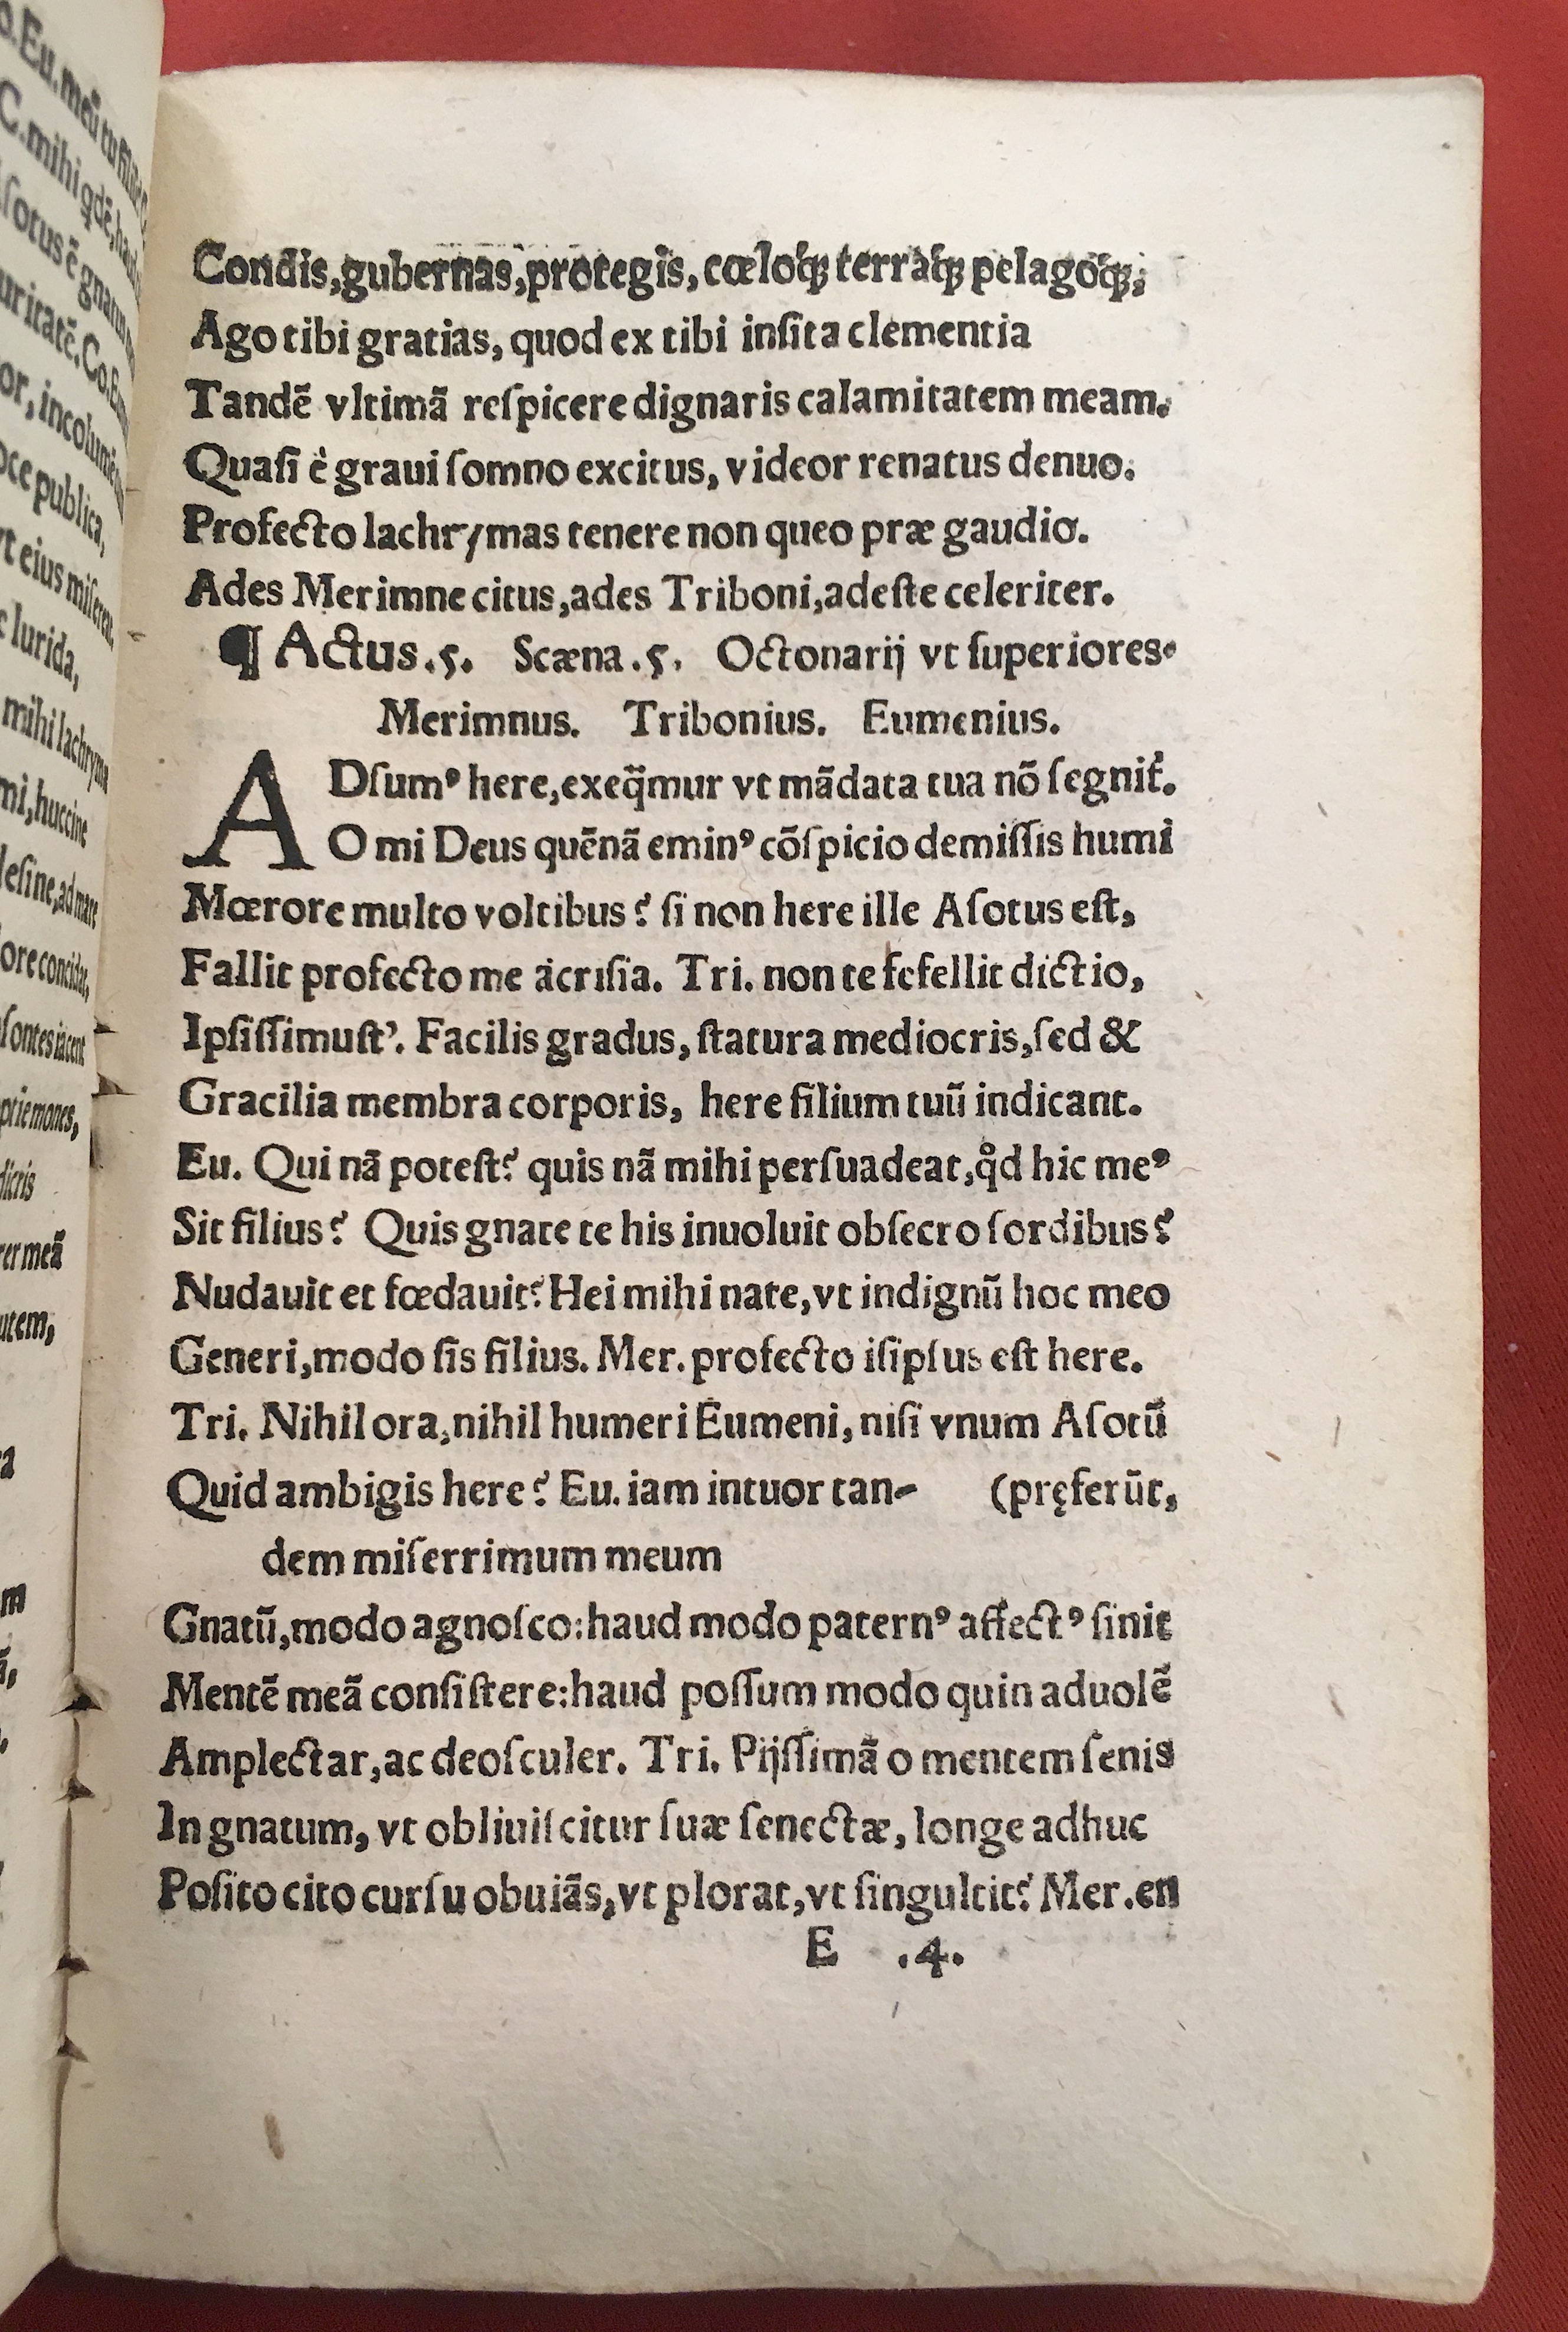 Condis,gubernas,protegis, cœloq́ꝫ terráq́ꝫ pelagoq́ꝫ;
Ago tibi gratias, quod ex tibi inſita clementia
Tandē vltimā reſpicere dignaris calamitatem meam.
Quaſi è graui ſomno excitus, videor renatus denuo.
Profecto lachrymas tenere non queo præ gaudio.
Ades Merimne citus,ades Triboni,adeſte celeriter.
¶ Actus.5. Scæna.5. Octonarij vt ſuperiores.
Merimnus. Tribonius. Eumenius.
ADſumꝰ here,exeq̄mur vt mādata tua nō ſegnit̃.
O mi Deus quēnā eminꝰ cōſpicio demiſſis humi
Mœrore multo voltibus? ſi non here ille Aſotus eſt,
Fallit profecto me acriſia. Tri. non te fefellit dictio,
Ipſiſſimuſt’. Facilis gradus, ſtatura mediocris,ſed &
Gracilia membra corporis, here filium tuū indicant.
Eu. Qui nā poteſt? quis nā mihi perſuadeat,qͦd hic meꝰ
Sit filius? Quis gnate te his inuoluit obſecro ſordibus?
Nudauit et fœdauit? Hei mihi nate,vt indignū hoc meo
Generi,modo ſis filius. Mer. profecto iſipſus eſt here.
Tri. Nihil ora,nihil humeri Eumeni, niſi vnum Aſotū
Quid ambigis here? Eu. iam intuor tan- (pręferūt,
dem miſerrimum meum
Gnatū,modo agnoſco:haud modo paternꝰ affectꝰ ſinit
Mentē meā conſiſtere:haud poſſum modo quin aduolē
Amplectar,ac deoſculer. Tri. Pijſſimā o mentem ſenis
In gnatum, vt obliuiſcitur ſuæ ſenectæ, longe adhuc
Poſito cito curſu obuiās,vt plorat,vt ſingultit? Mer.en
E .4.